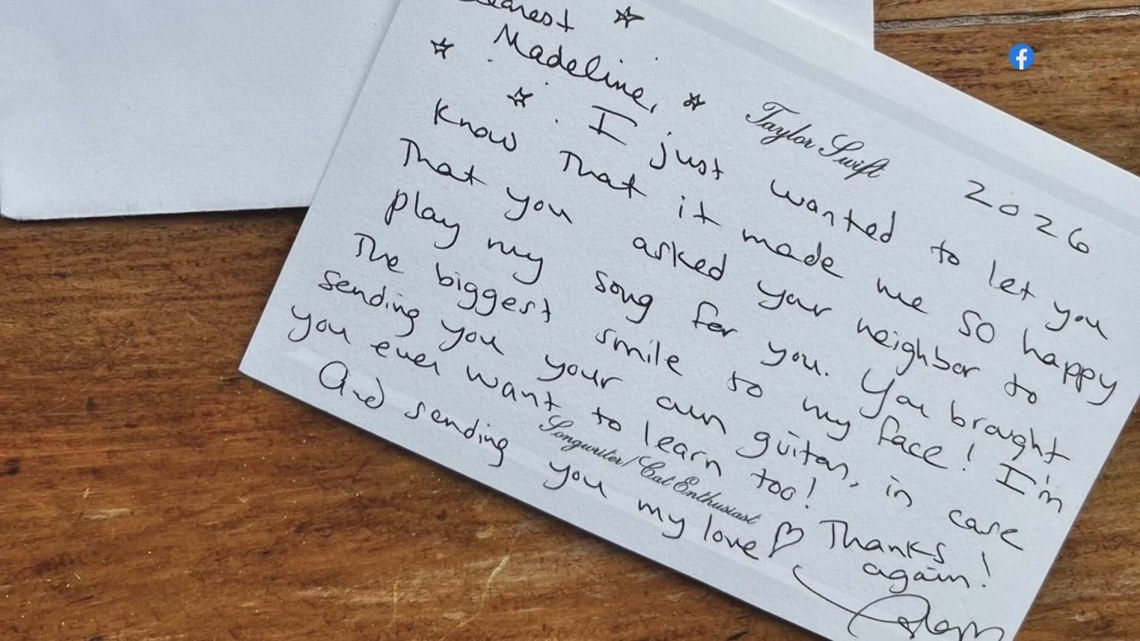 Dearest
Madeline,
Taylor Swift
2026
I just wanted to let you
know that it made me so happy
that you asked your neighbor to
play my song for you. You brought
the biggest smile to my face! I'm
sending you your own guitar, in case
you ever want to learn too!
Songwriter/Cat Enthusiast
And sending you my love ♡ Thanks
again!